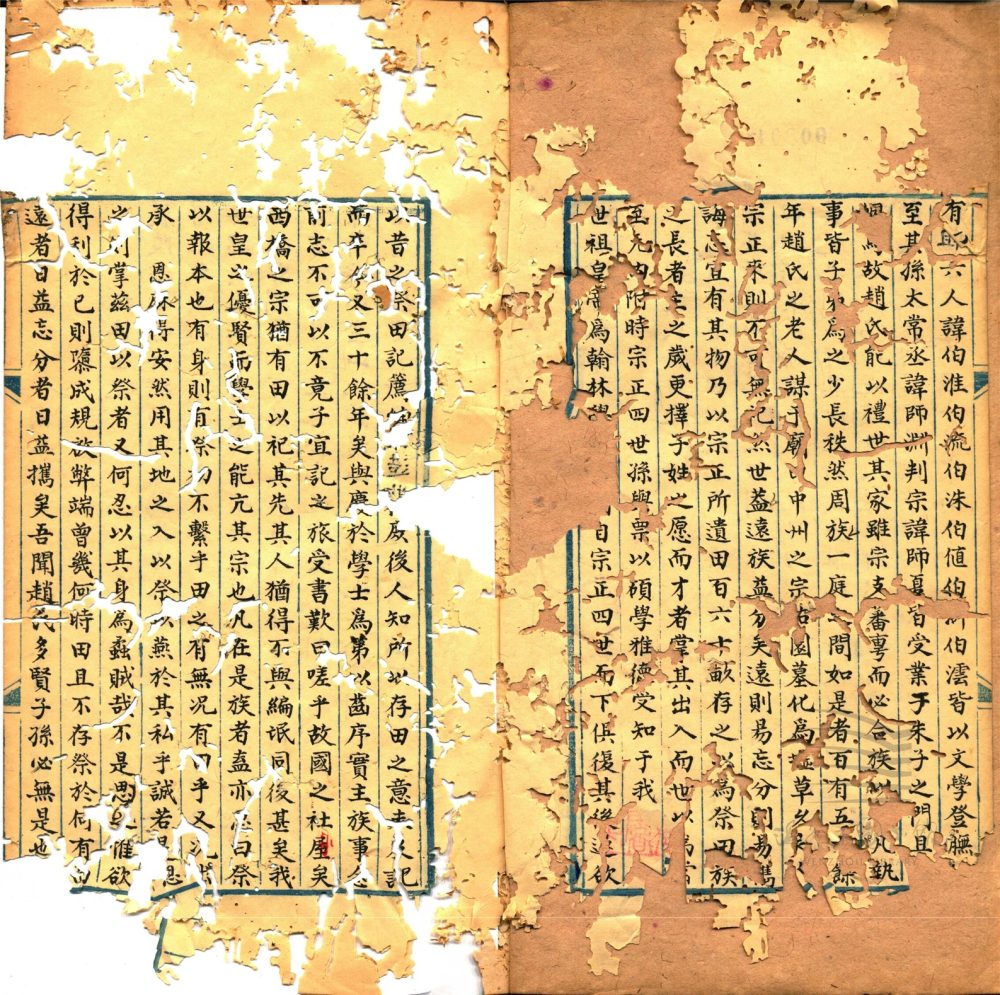 有 六人諱伯淮伯流伯洙伯値伯 伯澐皆以文學登 
至其孫太常丞諱師淵判宗諱師夏皆受業于朱子之門且
 故趙氏能以禮世其家雖宗支蕃 而必合族 凡執
事皆子弟爲之少長秩然周族一庭之間如是者百有五 餘
年趙氏之老人謀于廟曰中州之宗 園墓化爲 草 
宗正來則不可無記然世益遠族益 矣遠則易忘分則易 
誨 宜有其物乃以宗正所遺田百六十畝存之以爲祭田族
之長者主之歲更擇子姓之愿而才者掌其出入而世以爲 
至元內附時宗正四世孫與票以碩學雅德受知于我
世祖皇帝爲翰林 自宗正四世而下俱復其後 欲
以昔之祭田記 後人知所以存田之意 記
而卒 又三十餘年矣與 於學士爲第以齒序實主族事念
前志不可以不竟子宜記之旅受書歎曰嗟乎故國之社屋矣
西橋之宗猶有田以祀其先其人猶得不與編氓同後甚矣我
世皇之優賢而學士之能亢其宗也凡在是族者盍亦 曰祭
以報本也有身則有祭初不繫乎田之有無况有 乎又 
承 恩 得安然用其地之入以祭以燕於其私乎誠若是 
 則掌茲田以祭者又何忍以其身爲蟊賊哉不是思 惟欲
得利於已則隳成規啟弊端曾幾何時田且不存祭於何有 
遠者日益忘分者日益攜矣吾聞趙氏多賢子孫必無是也